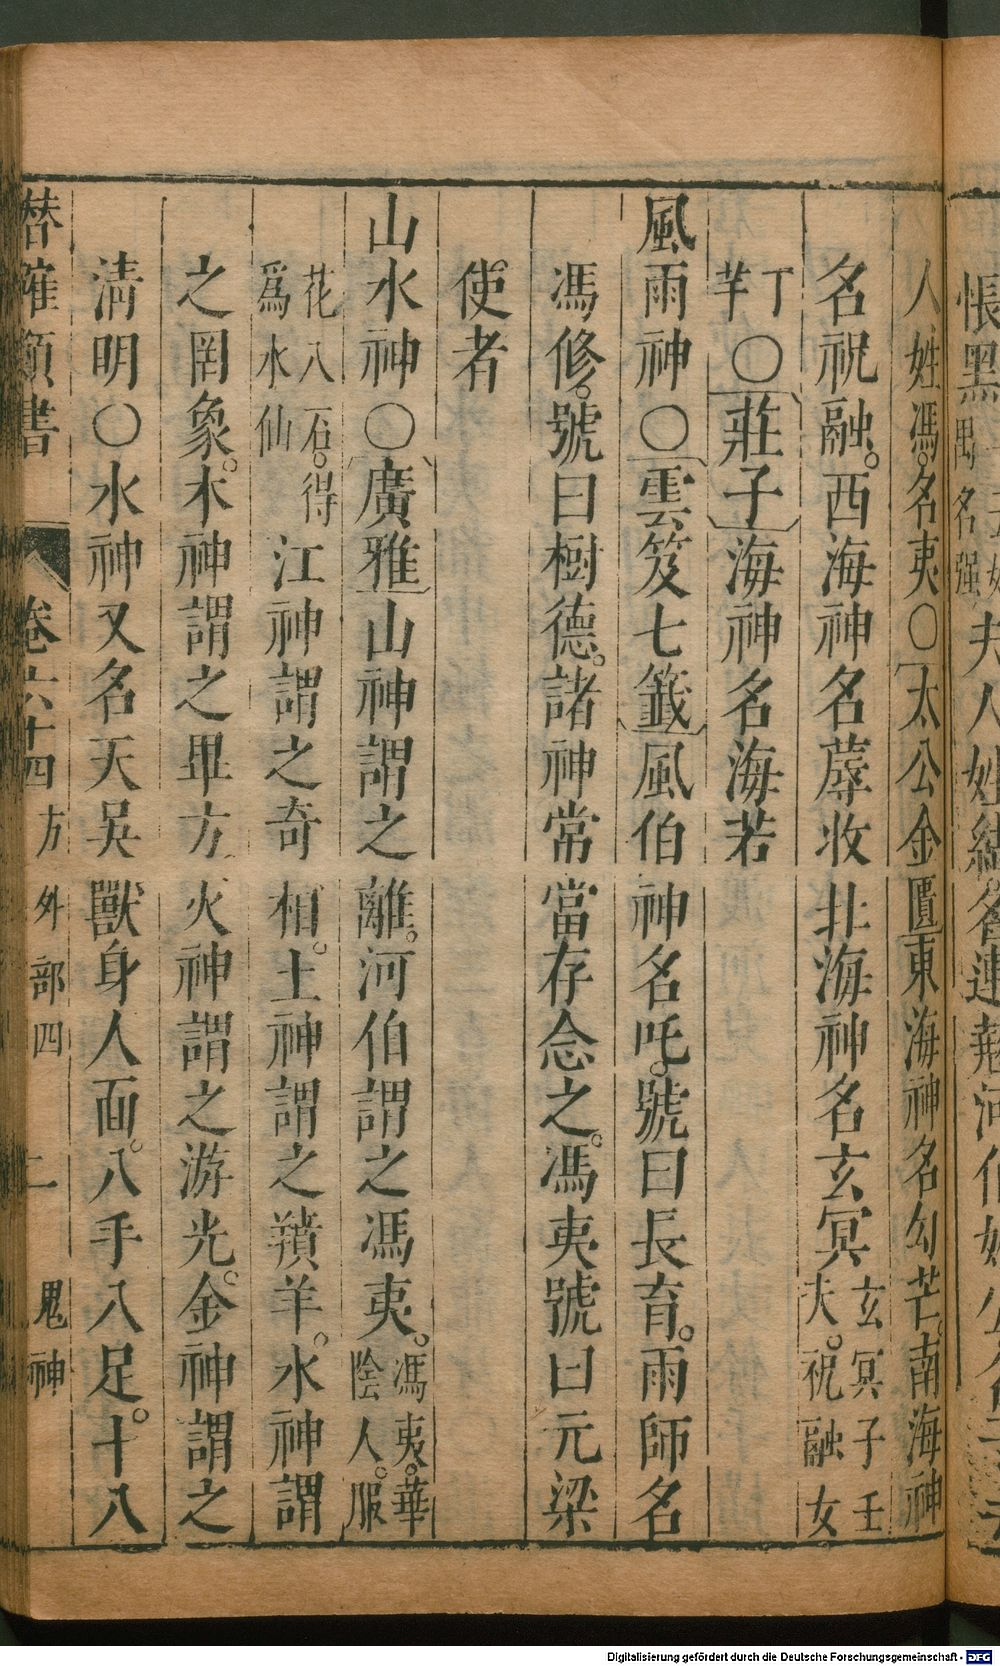 人姓馮。名夷○太公金匱東海神名勾芒。南海神
名祝融。西海神名蓐收北海神名玄冥玄冥子壬夫。祝融女
丁芊○莊子海神名海若
風雨神○雲笈七籤風伯神名吒。號曰長育。雨師名
馮修。號曰樹德。諸神常當存念之。馮夷號曰元梁
使者
山水神○廣雅山神謂之離。河伯謂之馮夷。馮夷。華陰人。服
花八石。得爲水仙江神謂之奇相。土神謂之羵羊。水神謂
之罔象。木神謂之畢方火神謂之游光。金神謂之
清明○水神又名天吳獸身人面。八手八足。十八
潜確類書 卷六十四 方外部四 二 鬼神
Digitalisierung gefördert durch die Deutsche Forschungsgemeinschaft - DFG